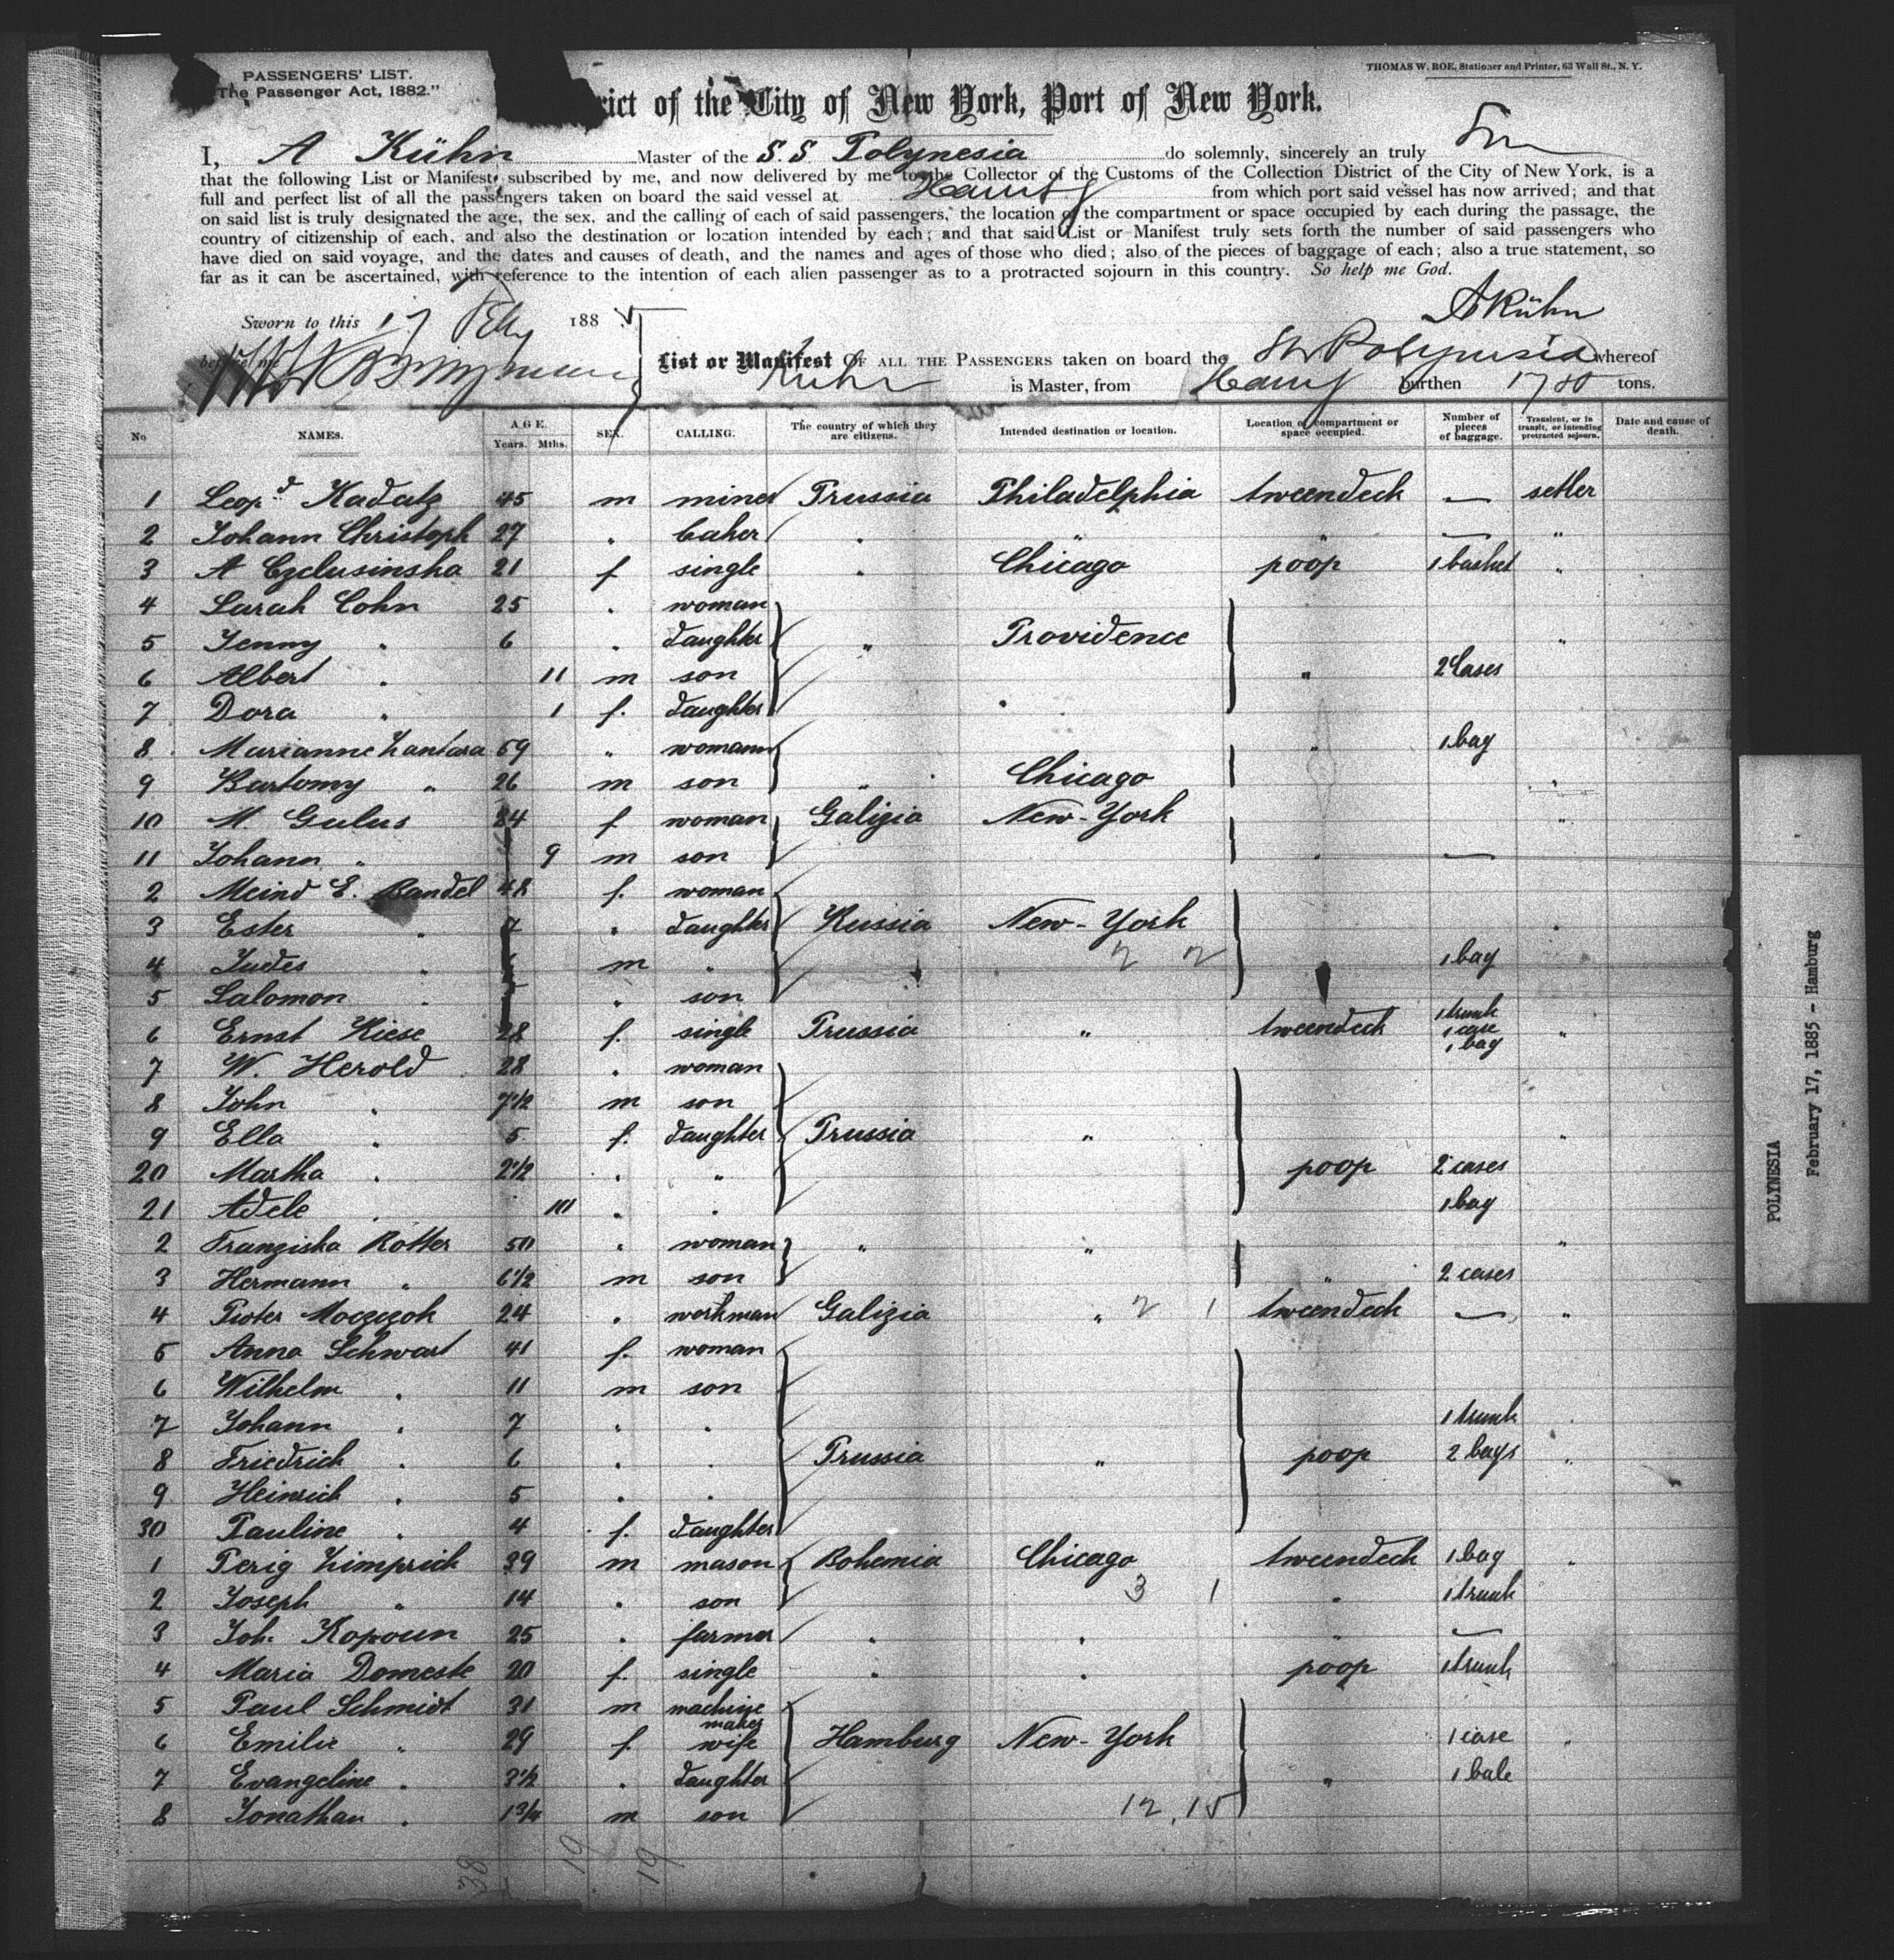 PASSENGERS' LIST.
"The Passenger Act, 1882."
THOMAS W. ROE, Stationer and Printer, 63 Wall St., N. Y.
rict of the City of New York, Port of New York.
I, A Kühn Master of the S. S Polynesia do solemnly, sincerely an truly
that the following List or Manifest, subscribed by me, and now delivered by me to the Collector of the Customs of the Collection District of the City of New York, is a
full and perfect list of all the passengers taken on board the said vessel at Hamb from which port said vessel has now arrived; and that
on said list is truly designated the age, the sex, and the calling of each of said passengers, the location of the compartment or space occupied by each during the passage, the
country of citizenship of each, and also the destination or location intended by each; and that said List or Manifest truly sets forth the number of said passengers who
have died on said voyage, and the dates and causes of death, and the names and ages of those who died; also of the pieces of baggage of each; also a true statement, so
far as it can be ascertained, with reference to the intention of each alien passenger as to a protracted sojourn in this country. So help me God.
A Kühn
Sworn to this 17 Feby 1885
before me
List or Manifest OF ALL THE PASSENGERS taken on board the Str Polynesia whereof
Kuhn is Master, from Hamb burthen 1780 tons.
No NAMES. AGE. Years. Mths. SEX. CALLING. The country of which they are citizens. Intended destination or location. Location of compartment or space occupied. Number of pieces of baggage. Transient, or in transit, or intending protracted sojourn. Date and cause of death.
1 Leopd Kadatz 45 m miner Prussia Philadelphia tweendeck — setler
2 Johann Christoph 27 " baker " " " — "
3 A Czelusinska 21 f single " Chicago poop 1 basket "
4 Sarah Cohn 25 " woman
5 Jenny " 6 " daughter " Providence "
6 Albert " 11 m son " 2 Cases
7 Dora " 1 f. daughter "
8 Marianne Kantara 59 " womann " 1 bag
9 Bartomy " 26 m son " Chicago "
10 M. Gulus 24 f woman Galizia New-York "
11 Johann " 9 m son " —
2 Meind E. Bandel 48 f. woman
3 Ester " 7 " daughter Russia New-York "
4 Judes " m " 2 2 1 bag
5 Salomon " " son
6 Ernst Kiese 28 f. single Prussia " tweendeck 1 trunk 1 case 1 bag "
7 W. Herold 28 " woman
8 John " 7 1/2 m son
9 Ella " 5 f. daughter Prussia " "
20 Martha " 2 1/2 " " poop 2 cases
21 Adele " 10 " " 1 bag
2 Franziska Rotter 50 " woman " " "
3 Hermann " 6 1/2 m son " 2 cases
4 Pioter Moczczok 24 " workman Galizia " 2 1 tweendeck — "
5 Anna Schwart 41 f. woman
6 Wilhelm " 11 m son
7 Johann " 7 " " 1 trunk
8 Friedrich " 6 " " Prussia " poop 2 bags "
9 Heinrich " 5 " "
30 Pauline " 4 f. daughter
1 Perig Zimprich 39 m mason Bohemia Chicago tweendeck 1 bag "
2 Joseph " 14 " son 3 1 " 1 trunk
3 Joh. Kopoun 25 " farmer " " " —
4 Maria Domeste 20 f. single " " poop 1 trunk
5 Paul Schmidt 31 m machine maker
6 Emilie " 29 f. wife Hamburg New-York 1 case "
7 Evangeline " 3 1/2 " daughter " 1 bale
8 Jonathan " 1 3/4 m son 12, 15
38 19 19
POLYNESIA
February 17, 1885 - Hamburg